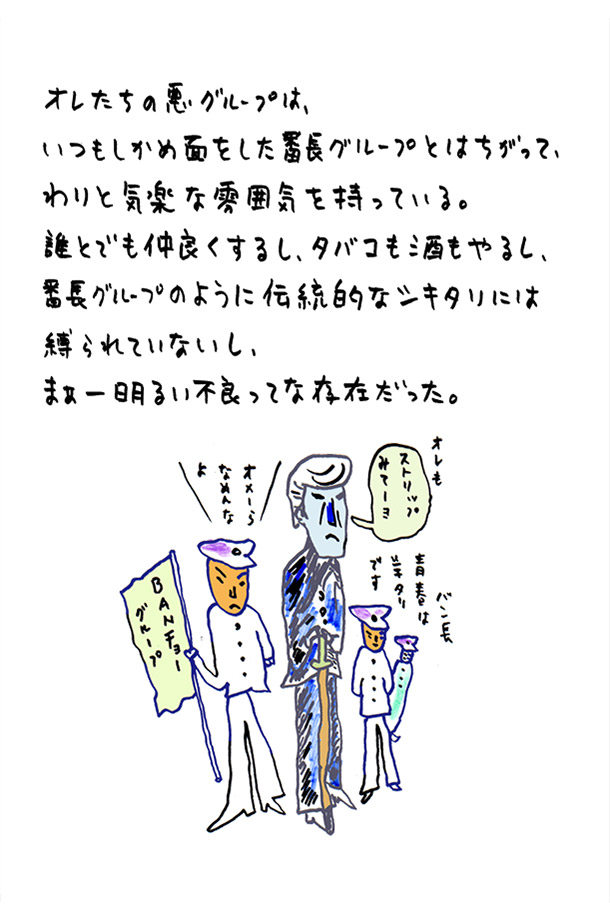 オレたちの悪グループは、
いつもしかめ面をした番長グループとはちがって、
わりと気楽な雰囲気を持っている。
誰とでも仲良くするし、タバコも酒もやるし、
番長グループのように伝統的なシキタリには
縛られていないし、
まぁー明るい不良ってな存在だった。
オレも
ストリップ
みてーョ
オメーら
なめんな
よ
バン長
青春は
シキタリ
です
BANチョー
グループ